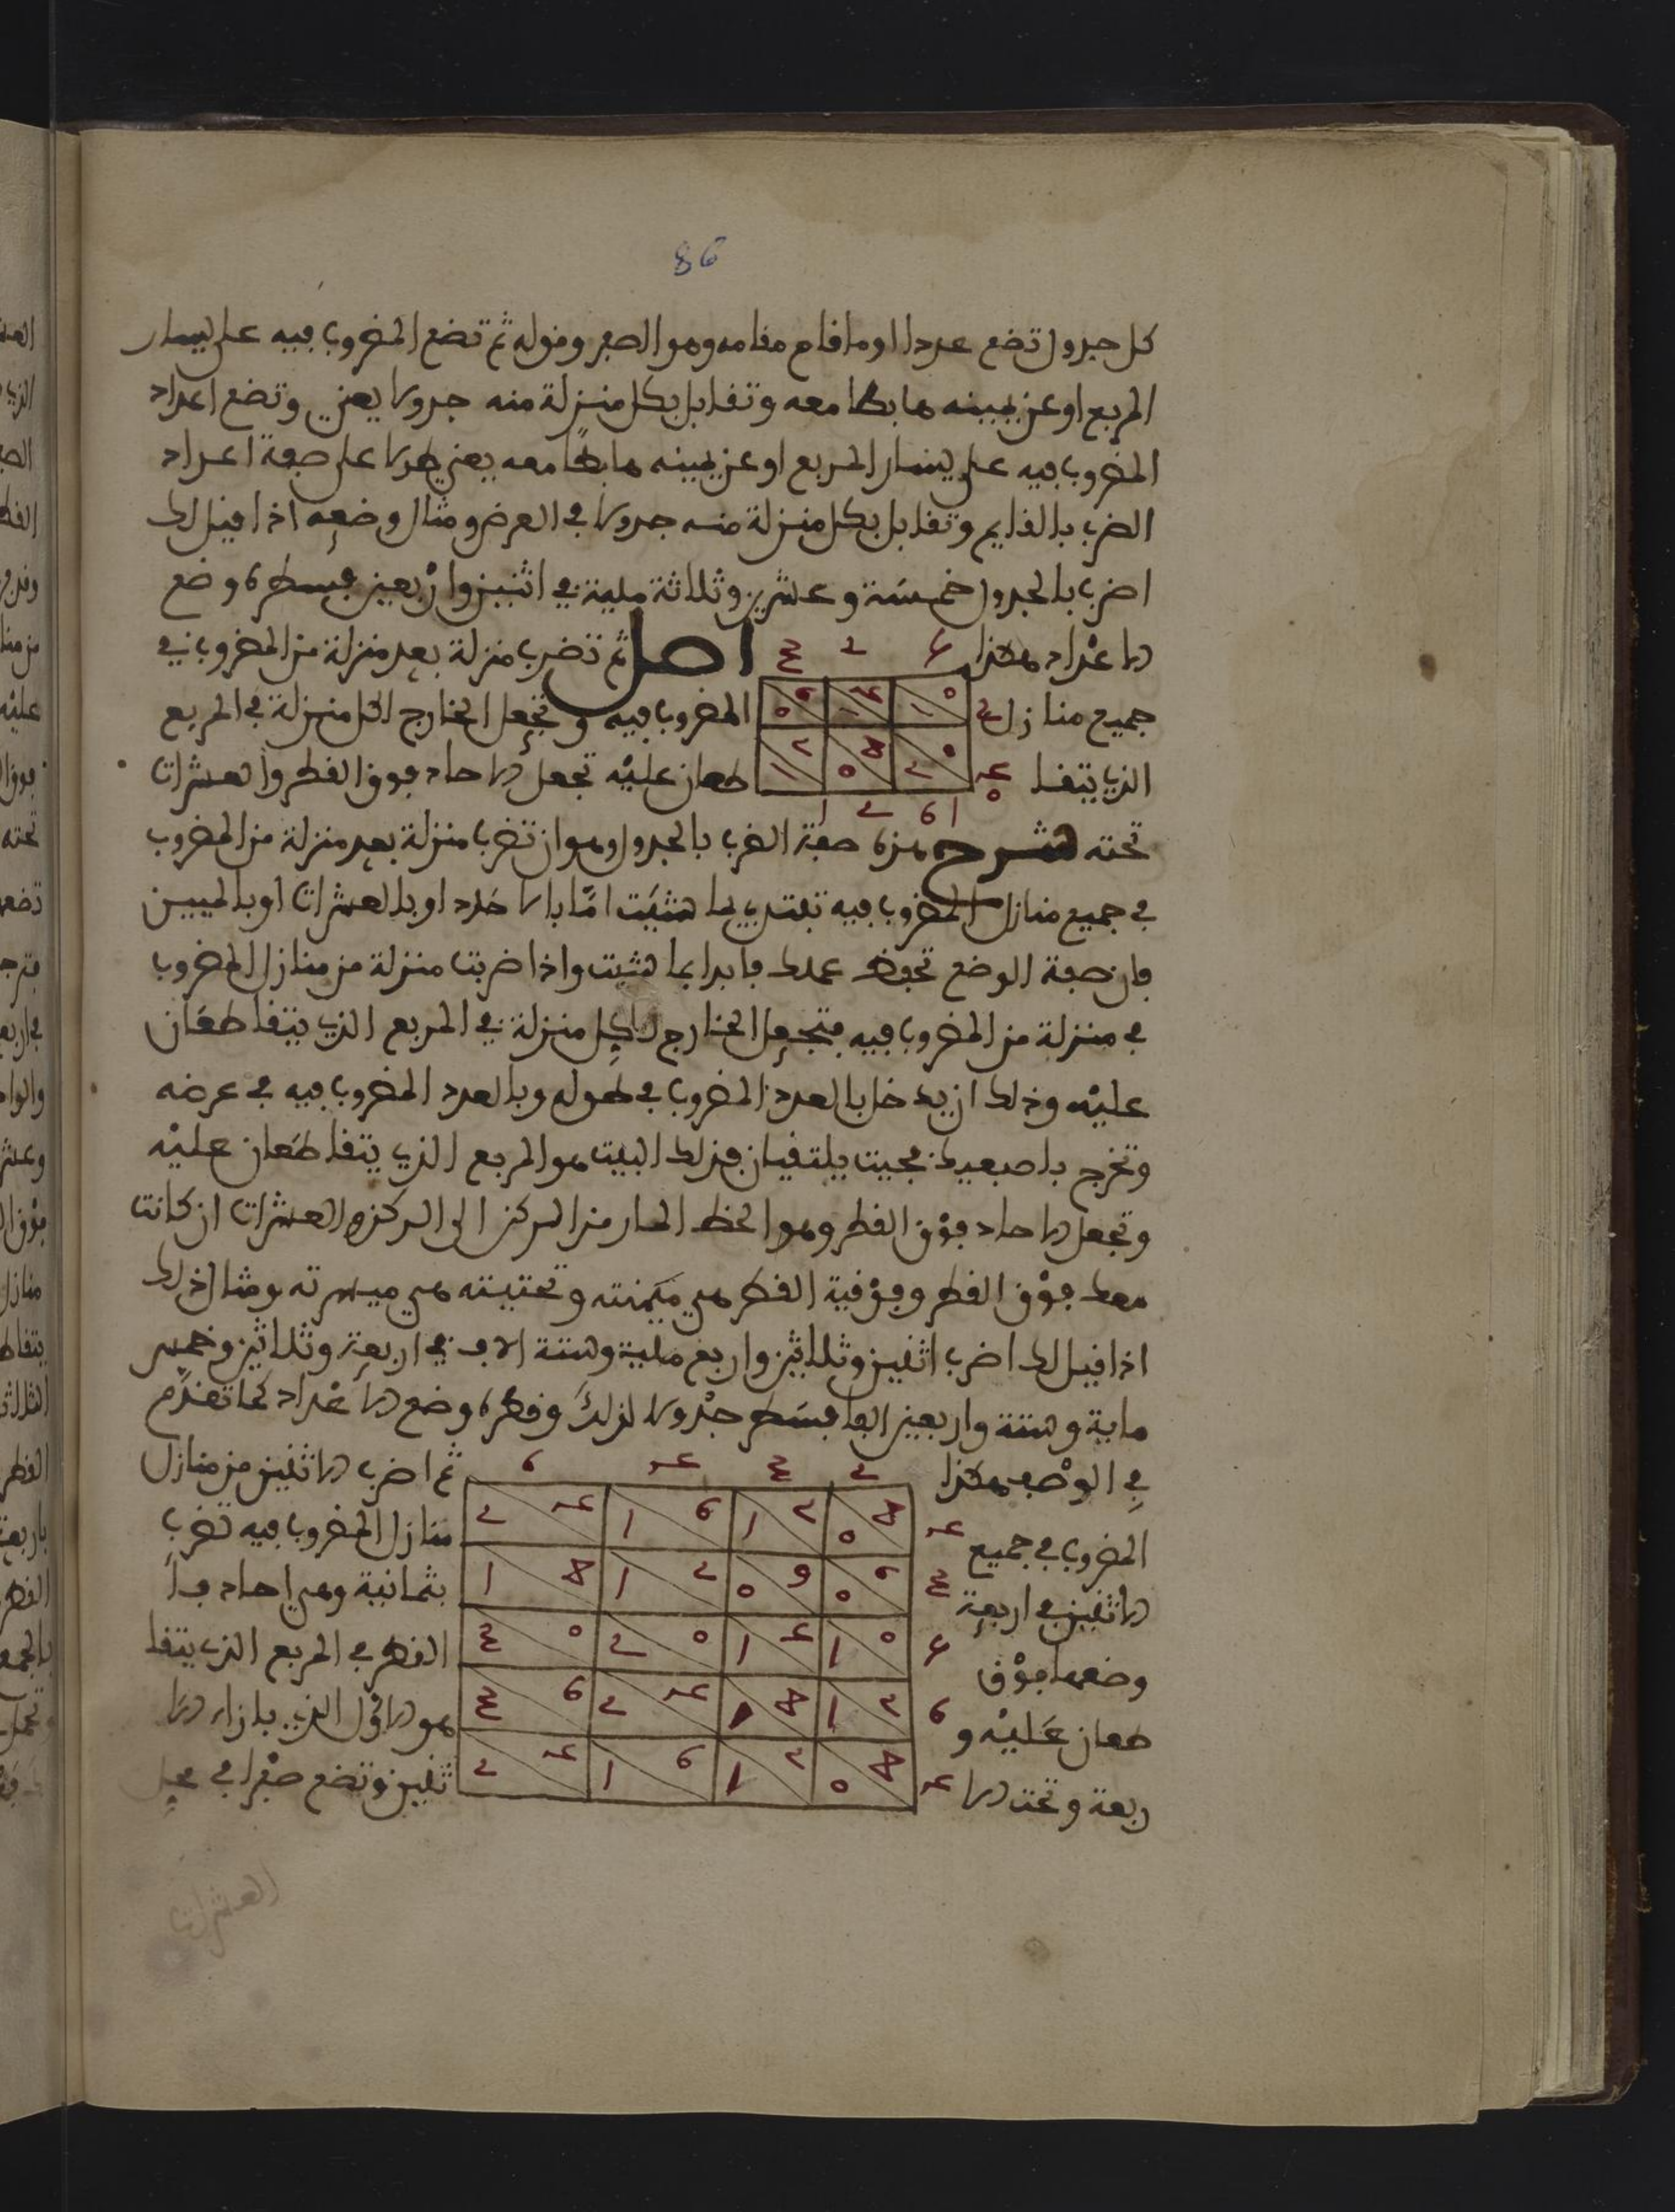 86
كل جدول تضع عددا او ما قام مقامه وهو الصفر وقوله ثم تضع المضروب فيه على يسار
المربع او عن يمينه هابطا معه وتقابل بكل منزلة منه جدولا يعني وتضع اعداد
المضروب فيه على يسار المربع او عن يمينه هابطا معه يعني طولا على صفة اعداد
الضرب بالقايم وتقابل بكل منزلة منه جدولا في العرض ومثال وضعه اذا قيل لك
اضرب بالجدول خمسة وعشرين وثلاثة ماية في اثنين واربعين فسطره وضع
الاعداد هكذا اصل ثم تضرب منزلة بعد منزلة من المضروب في
جميع منازل المضروب فيه وتجعل الخارج لكل منزلة في المربع
الذي يتقا طعان عليه تجعل الاحاد فوق القطر والعشرات
تحته شرح هذه صفة الضرب بالجدول وهو ان تضرب منزلة بعد منزلة من المضروب
في جميع منازل المضروب فيه تبتدي بما شيت اما بالاحاد او بالعشرات او بالميين
فان صفة الوضع تحفظ عملك فابدا بما شيت واذا ضربت منزلة من منازل المضروب
في منزلة من المضروب فيه فتجعل الخارج لكل منزلة في المربع الذي يتقاطعان
عليه وذلك ان يدخل بالعدد المضروب في طوله وبالعدد المضروب فيه في عرضه
وتخرج باصبعيك فحيث يلتقيان فذلك البيت هو المربع الذي يتقاطعان عليه
وتجعل الاحاد فوق القطر وهو الخط المار من المركز الى المركز والعشرات ان كانت
معك فوق القطر وفوقية القطر هي ميمنته وتحتيته هي ميسرته ومثال ذلك
اذا قيل لك اضرب اثنين وثلاثين واربع ماية وستة الاف في اربعة وثلاثين وخمس
ماية وستة واربعين الفا فسطر جدولا لذلك وقطره وضع الاعداد كما تقدم
في الوصف هكذا ثم اضرب الاثنين من منازل
المضروب في جميع منازل المضروب فيه تضرب
الاثنين في اربعة بثمانية وهي احاد فا
وضعها فوق القطر في المربع الذي يتقا
طعان عليه و هو الاول الذي بازاء الا
ربعة وتحت الا ثنين وتضع صفرا في محل
العشرات